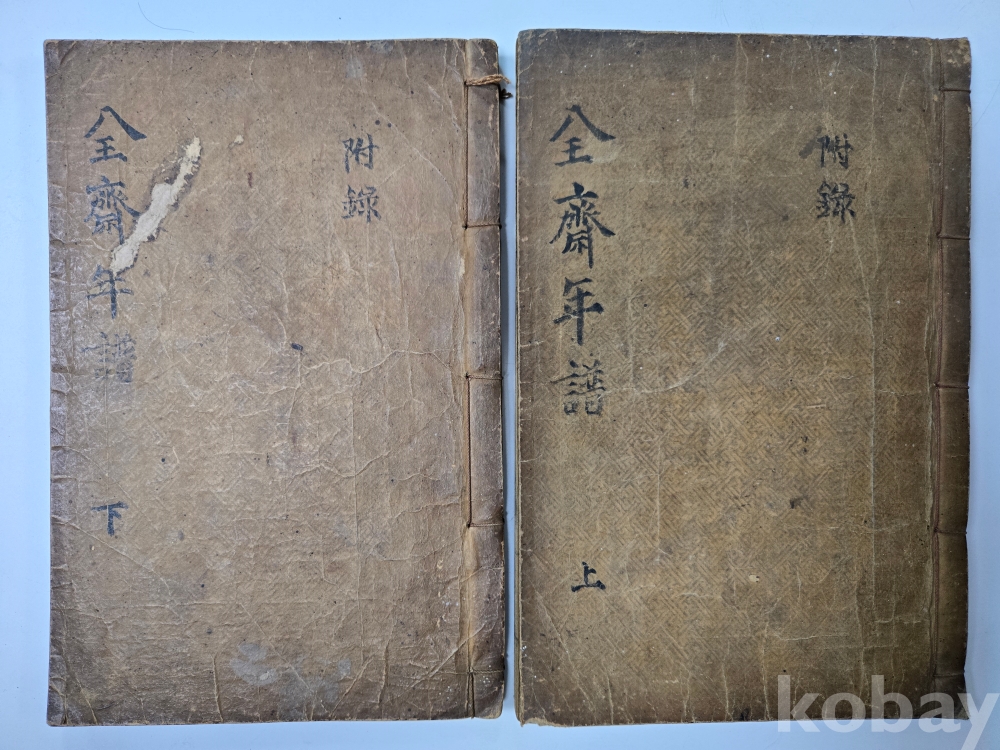 附錄
全齋年譜 上
附錄
全齋年譜 下
kobay